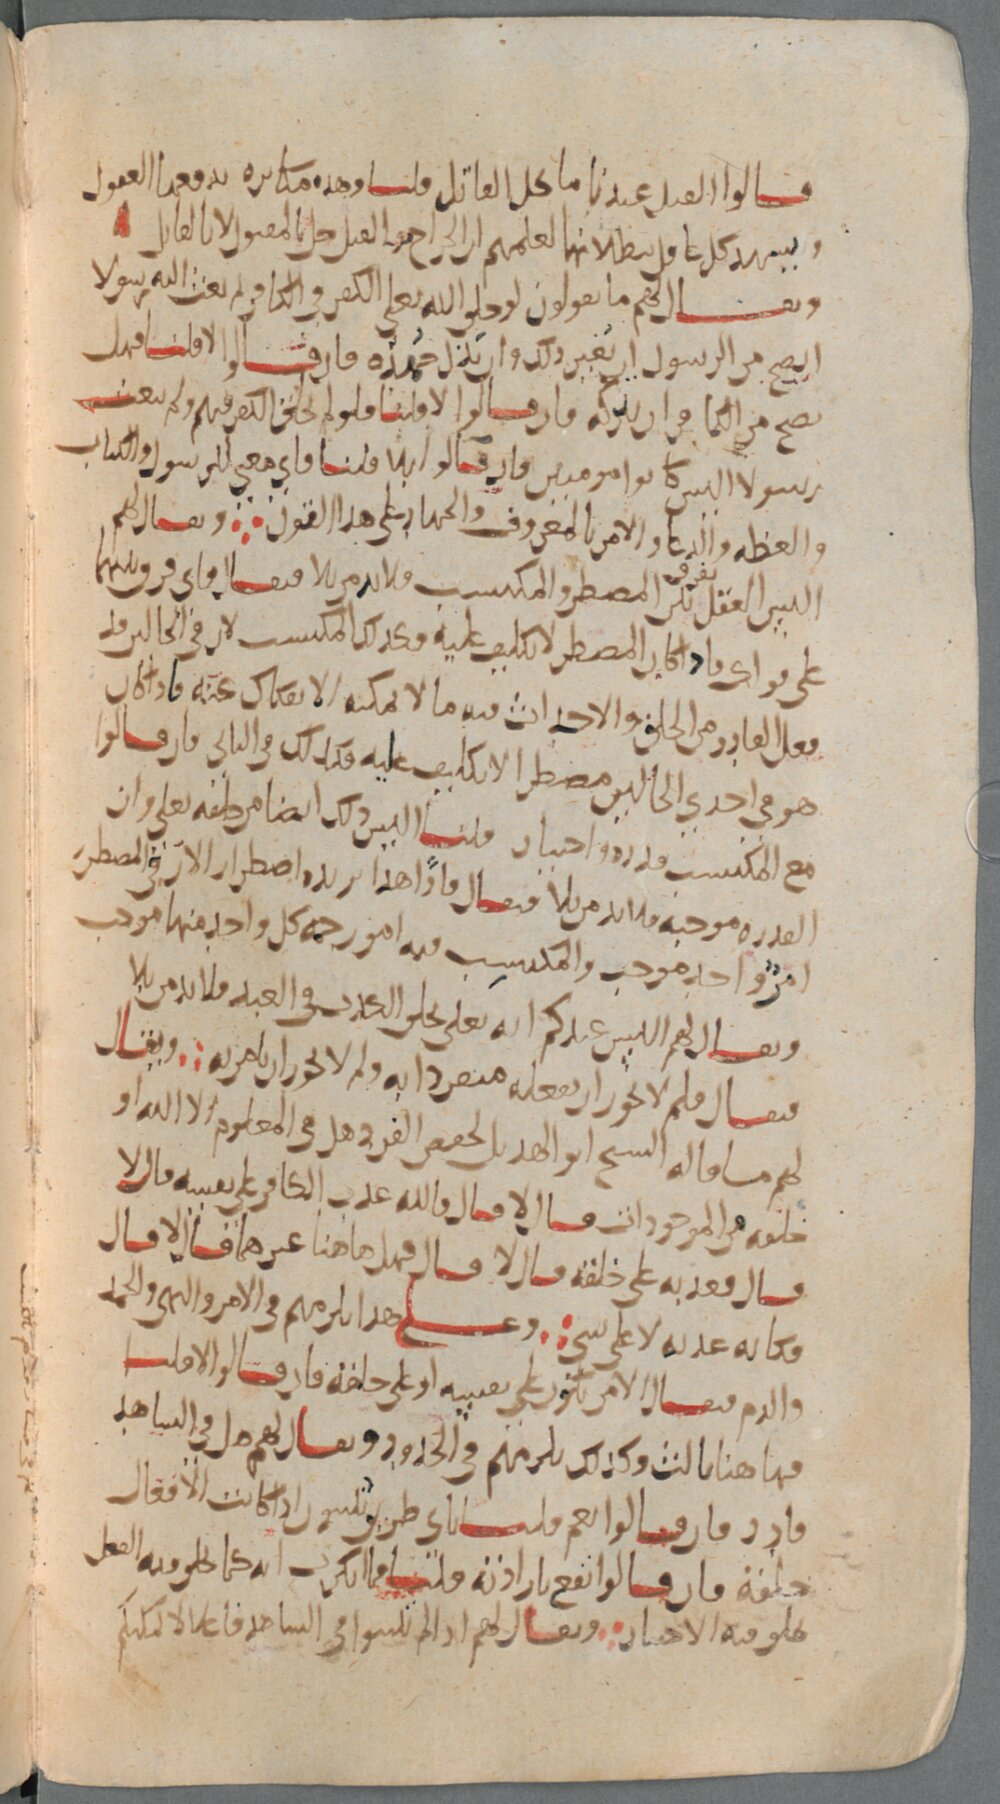 قالوا القتل عندنا ما كل القاتل قلنا وهذه مكابره يدفعها العقول
ويشهد كل عاقل ببطلانها لعلمهم ان الجراح والقتل حل بالمقتول لا بالقاتل
ويقال لهم ما تقولون لو خلق الله تعلى الكفر في الكافر ثم بعث اليه رسولا
ايصح من الرسول ان يغير ذلك وان يبذل جهده فان قالوا لا قلنا فهل
يصح من الكافر ان يتركه فان قالوا لا قلنا فلو لم يخلق الكفر فيهم ولم يبعث
رسولا اليس كانوا مومنين فان قالوا بلا قلنا فاي معنى للرسول والكتاب
والعظه والدعا والامر بالمعروف والجهاد على هذا القول ويقال لهم
اليس العقل يفرق بين المضطر والمكتسب فلا بد من بلا فيقال فاي فرق بينهما
على قولكم فاذا كان المضطر لا تكليف عليه وكذلك المكتسب لان في الحالين قد
فعل القادر من الخلق والاحداث فيه ما لا يمكنه الانفكاك عنه فاذا كان
هو في احدى الحالين مضطرا لا تكليف عليه فكذلك في الثاني فان قالوا
مع المكتسب قدره واختيار قلنا اليس ذلك ايضا من خلقه تعلى وان
القدره موجبه فلا بد من بلا فيقال فاذا هذا يزيده اضطرارا لان في المضطر
امر واحد موجب والمكتسب فيه امور جمه كل واحد منها موجب
ويقال لهم اليس عندكم انه تعلى يخلق الكذب في العبد فلا بد من بلا
فيقال فلم لا يجوز ان يفعله منفردا به ولم لا يجوز ان يامر به ويقال
لهم ما قاله الشيخ ابو الهذيل لحفص الفرد هل في المعلوم الا الله او
خلقه من الموجودات فقال لا قال فالله عذب الكافر على نفسه قال لا
قال فعذبه على خلقه قال لا قال فهل هاهنا غيرهما فقال لا قال
فكانه عذبه لا على شي وعلى هذا يلزمهم في الامر والنهي والحمد
والذم فيقال الامر يكون على نفسه او على خلقه فان قالوا لا قلنا
فها هنا ثالث وكذلك يلزمهم في الحدود ويقال لهم هل في الشاهد
قادر فان قالوا نعم قلنا باي طريق تثبتون اذا كانت الافعال
خلقه فان قالوا تقع بارادته قلنا فما انكرتم انه كما يخلق فيه الفعل
يخلق فيه الاختيار ويقال لهم اذا لم تثبتوا في الشاهد فاعلا لا يمكنكم